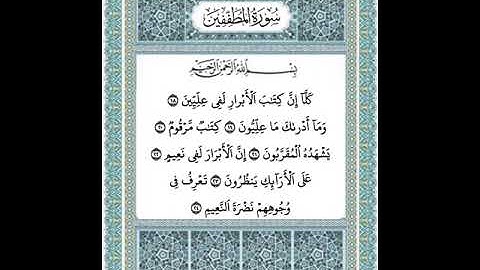 سُورَةُ الْمُطَفِّفِينَ
بِسْمِ اللَّهِ الرَّحْمَٰنِ الرَّحِيمِ
كَلَّا إِنَّ كِتَٰبَ الْأَبْرَارِ لَفِى عِلِّيِّينَ ١٨
وَمَا أَدْرَىٰكَ مَا عِلِّيُّونَ ١٩ كِتَٰبٌ مَّرْقُومٌ ٢٠
يَشْهَدُهُ الْمُقَرَّبُونَ ٢١ إِنَّ الْأَبْرَارَ لَفِى نَعِيمٍ ٢٢
عَلَى الْأَرَآئِكِ يَنظُرُونَ ٢٣ تَعْرِفُ فِى
وُجُوهِهِمْ نَضْرَةَ النَّعِيمِ ٢٤